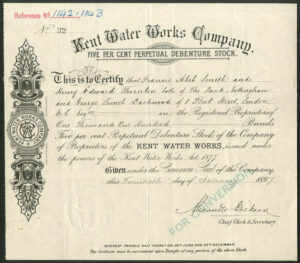 Reference No 1142/1143
No 32
Kent Water Works Company.
FIVE PER CENT PERPETUAL DEBENTURE STOCK.
This is to Certify that Francis Abel Smith and
Henry Edward Thornton both of The Bank Nottingham
and George Lionel Dashwood of 1 Fleet Street London
E.C. are the Registered Proprietors of
One Thousand One Hundred Pounds
Five per cent Perpetual Debenture Stock of the Company
of Proprietors of the KENT WATER WORKS, issued under
the powers of the Kent Water Works Act 1877
Given under the Common Seal of the Company
this Twentieth day of January 1897
FOR CONVERSION
Chief Clerk & Secretary.
INTEREST PAYABLE HALF YEARLY ON 24TH JUNE AND 25TH DECEMBER
The Certificate must be surrendered upon Transfer of any portion of the above Stock.